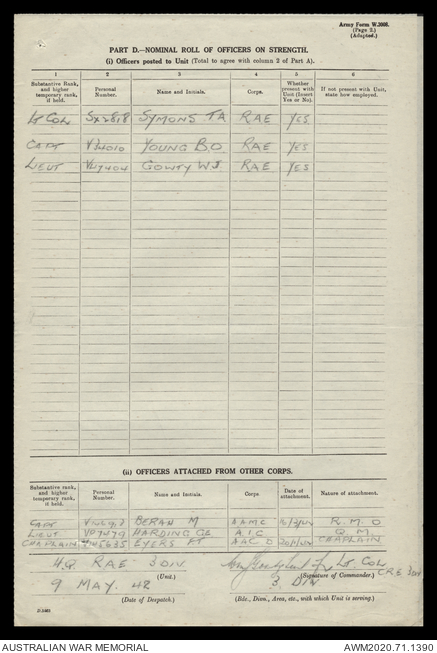 Army Form W.3008.
(Page 2.)
(Adapted.)
PART D.—NOMINAL ROLL OF OFFICERS ON STRENGTH.
(i) Officers posted to Unit (Total to agree with column 2 of Part A).
1 2 3 4 5 6
Substantive Rank, and higher temporary rank, if held. Personal Number. Name and Initials. Corps. Whether present with Unit (Insert Yes or No). If not present with Unit, state how employed.
Lt Col SX2818 SYMONS TA RAE YES
CAPT V34010 YOUNG B.O RAE YES
LIEUT GOWTY W.J. RAE YES
(ii) OFFICERS ATTACHED FROM OTHER CORPS.
Substantive rank, and higher temporary rank, if held. Personal Number. Name and Initials. Corps Date of attachment. Nature of attachment.
CAPT BERAN M AAMC R.M.O
LIEUT HARDING AIC Q.M
CHAPLAIN EYERS AAC D CHAPLAIN
H.Q. RAE 3 DIV Lt. Col
(Unit.) (Signature of Commander.) CRE 3 Div
9 MAY. 42 3 DIV
(Date of Despatch.) (Bde., Divn., Area, etc., with which Unit is serving.)
AUSTRALIAN WAR MEMORIAL AWM2020.71.1390